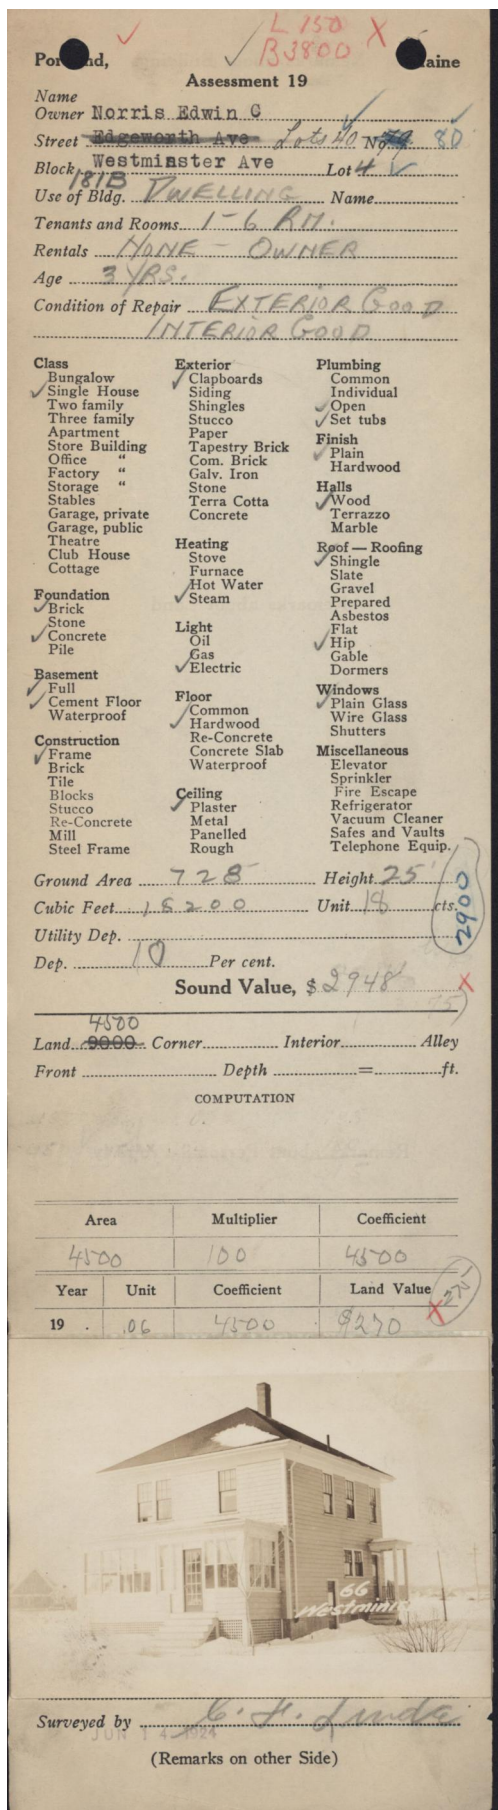 L 150
B 3800
Portland, Maine
Assessment 19
Name
Owner Norris Edwin C
Street Edgeworth Ave Lots 40 No. 79 80
Block Westminster Ave Lot 4
181B
Use of Bldg. DWELLING Name
Tenants and Rooms 1-6 RM.
Rentals NONE - OWNER
Age 3 YRS.
Condition of Repair EXTERIOR GOOD
INTERIOR GOOD
Class
Bungalow
✓ Single House
Two family
Three family
Apartment
Store Building
Office "
Factory "
Storage "
Stables
Garage, private
Garage, public
Theatre
Club House
Cottage
Foundation
✓ Brick
Stone
✓ Concrete
Pile
Basement
✓ Full
✓ Cement Floor
Waterproof
Construction
✓ Frame
Brick
Tile
Blocks
Stucco
Re-Concrete
Mill
Steel Frame
Exterior
✓ Clapboards
Siding
Shingles
Stucco
Paper
Tapestry Brick
Com. Brick
Galv. Iron
Stone
Terra Cotta
Concrete
Heating
Stove
Furnace
Hot Water
✓ Steam
Light
Oil
Gas
✓ Electric
Floor
Common
✓ Hardwood
Re-Concrete
Concrete Slab
Waterproof
Ceiling
✓ Plaster
Metal
Panelled
Rough
Plumbing
Common
Individual
✓ Open
✓ Set tubs
Finish
✓ Plain
Hardwood
Halls
✓ Wood
Terrazzo
Marble
Roof — Roofing
✓ Shingle
Slate
Gravel
Prepared
Asbestos
Flat
✓ Hip
Gable
Dormers
Windows
✓ Plain Glass
Wire Glass
Shutters
Miscellaneous
Elevator
Sprinkler
Fire Escape
Refrigerator
Vacuum Cleaner
Safes and Vaults
Telephone Equip.
Ground Area 728 Height 25'
Cubic Feet 18200 Unit 18 cts.
2900
Utility Dep.
Dep. 10 Per cent.
Sound Value, $ 2948
4500
Land 9000 Corner Interior Alley
Front Depth = ft.
COMPUTATION
Area Multiplier Coefficient
4500 100 4500
Year Unit Coefficient Land Value
275
19 . .06 4500 $270
66
Westminster
Surveyed by
JUN 14 1924
(Remarks on other Side)